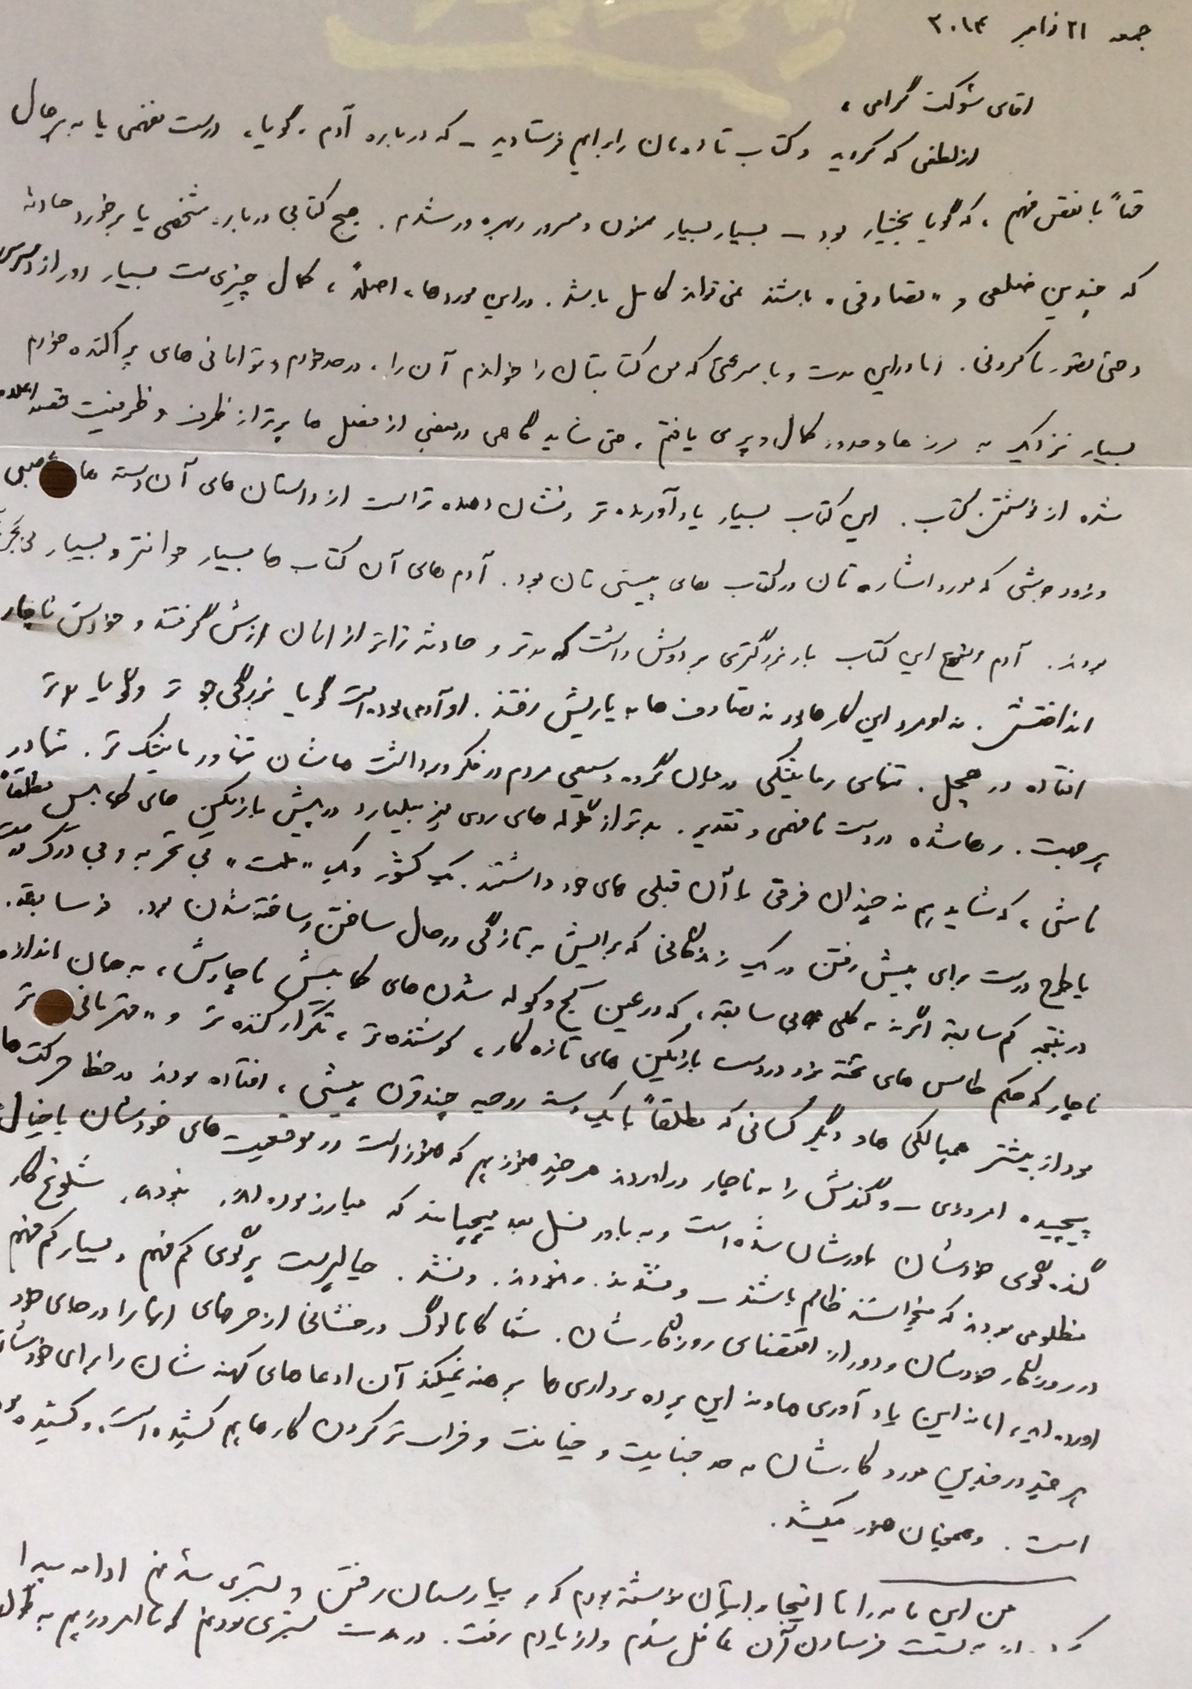 جمعه ۲۱ نوامبر ۲۰۱۴
آقای شوکت گرامی،
از لطفی که کردید و کتاب تازه‌تان را برایم فرستادید ـ که درباره آدم، گویا، درست نفهمی یا به هر حال
حتماً با نقص فهم، که گویا بختیار بود ـ بسیار بسیار ممنون و مسرور و بهره‌ور شدم. هیچ کتابی درباره شخصی یا برخورد حادثه
که چندین ضلعی و «تصادفی» باشند نمی‌تواند کامل باشد. در این موردها، اصلاً، کمال چیزی‌ست بسیار دور از دسترس
و حتی تصور ناکردنی. اما در این مدت و با سرعتی که من کتابتان را خواندم آن را، در حد خودم و توانائی‌های پراکنده خودم
بسیار نزدیک به مرزها و حدود کمال و پری یافتم، حتی شاید گاهی در بعضی از فصل‌ها پرتر از ظرف و ظرفیت قصد اعلام
شده از نوشتن کتاب. این کتاب بسیار یادآورنده‌تر و نشان دهنده‌تر است از داستان‌های آن دسته‌های عصبی
و زودجوشی که مورد اشاره‌تان در کتاب‌های پیشی‌تان بود. آدم‌های آن کتاب‌ها بسیار جوانتر و بسیار بی‌تجربه
بودند. آدم این کتاب بار بزرگتری بر دوش داشت که بدتر و حادثه‌زاتر از آنان ازش گرفتند و خودش ناچار
انداختش. نه او مرد این کارها بود نه تصادف‌ها به یاریش رفتند. او آدمی بوده‌است گویا بزرگی‌جوتر و گویا
افتاده در هچل. تنهای رمانتیکی در میان گروه وسیعی مردم در فکر و برداشت‌هاشان تنها و رمانتیک‌تر. تنها در
پرجهت. رها شده در دست نافهمی و تقدیر. بدتر از گلوله‌های روی میز بیلیارد در پیش بازیکن‌های کمابیش مطلقاً
ناشی، که شاید هم نه چندان فرقی با آن قبلی‌های خود داشتند. یک کشور و یک «ملت» بی‌تجربه و بی‌درک درست
یا طرح درست برای پیش رفتن در یک زندگانی که برایش به تازگی در حال ساختن و ساخته شدن بود. نه سابقه.
در نتیجه کم سابقه اگر نه به کلی بی‌سابقه، که در عین کج و کوله شدن‌های کمابیش ناچارش، به همان اندازه
ناچار که حکم طاس‌های تخته نرد در دست بازیکن‌های تازه‌کار، کوشنده‌تر، تکرار کننده‌تر و «قهرمانی»‌تر
بود از بیشتر همپالکی‌ها و دیگر کسانی که مطلقاً با یک بسته روحیه چند قرن پیشی، افتاده بودند در خط حرکت‌ها
پیچیده امروزی ـ و گندش را به ناچار در آوردند هر چند هنوز هم که هنوز است در موقعیت‌های خودشان با خیال
گنده‌گوی خودشان باورشان شده‌است و به باور نسل بعد می‌چپانند که مبارز بوده‌اند. نبوده‌اند. شلوغ‌کار
مظلومی بودند که میخواستند ظالم باشند ـ و نشدند. و نبودند. و نشد. خیالپرست پرگوی کم فهم و بسیار کم فهم
در روزگار خودشان و دور از اقتضای روزگارشان. شما کاتالوگ درخشانی از حرف‌های آنها را در جاهای خود
آورده‌اید، اما نه این یادآوری‌ها و نه این پرده‌برداری‌ها برهنه نمیکند آن ادعاهای کهنه‌شان را برای خودشان
هر چند در چندین مورد کارشان به حد جنایت و خیانت و خراب‌تر کردن کارها هم کشیده‌است. و کشیده شده
است. و همچنان هنوز میکشد.
من این نامه را تا اینجا برایتان نوشته بودم که به بیمارستان رفتن و بستری شدنم ادامه پیدا
کرد. از به پست فرستادن آن غافل شدم و از یادم رفت. در مدت بستری بودنم که تا امروز هم به طول